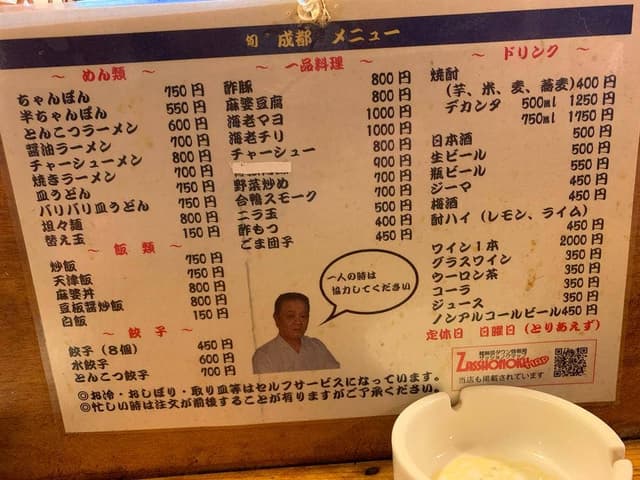 旬 成都 メニュー
～ めん類 ～
ちゃんぽん 750円
半ちゃんぽん 550円
とんこつラーメン 600円
醤油ラーメン 700円
チャーシューメン 800円
焼きラーメン 700円
皿うどん 750円
バリバリ皿うどん 750円
坦々麺 800円
替え玉 150円
～ 飯 類 ～
炒飯 750円
天津飯 750円
麻婆丼 800円
豆板醤炒飯 800円
白飯 150円
～ 餃 子 ～
餃子（8個） 450円
水餃子 600円
とんこつ餃子 700円
～ 一品料理 ～
酢豚 800円
麻婆豆腐 800円
海老マヨ 1000円
海老チリ 1000円
チャーシュー 800円
900円
野菜炒め 700円
合鴨スモーク 700円
ニラ玉 500円
酢もつ 400円
ごま団子 450円
一人の時は
協力してください
～ ドリンク ～
焼酎
（芋、米、麦、蕎麦）400円
デカンタ 500ml 1250円
750ml 1750円
日本酒 500円
生ビール 500円
瓶ビール 550円
ジーマ 450円
梅酒 450円
酎ハイ（レモン、ライム）
450円
ワイン1本 2000円
グラスワイン 350円
ウーロン茶 350円
コーラ 350円
ジュース 350円
ノンアルコールビール450円
定休日 日曜日（とりあえず）
ZASSHONOKUMA
当店も掲載されています
◎お冷・おしぼり・取り皿等はセルフサービスになっています。
◎忙しい時は注文が前後することが有りますがご了承ください。